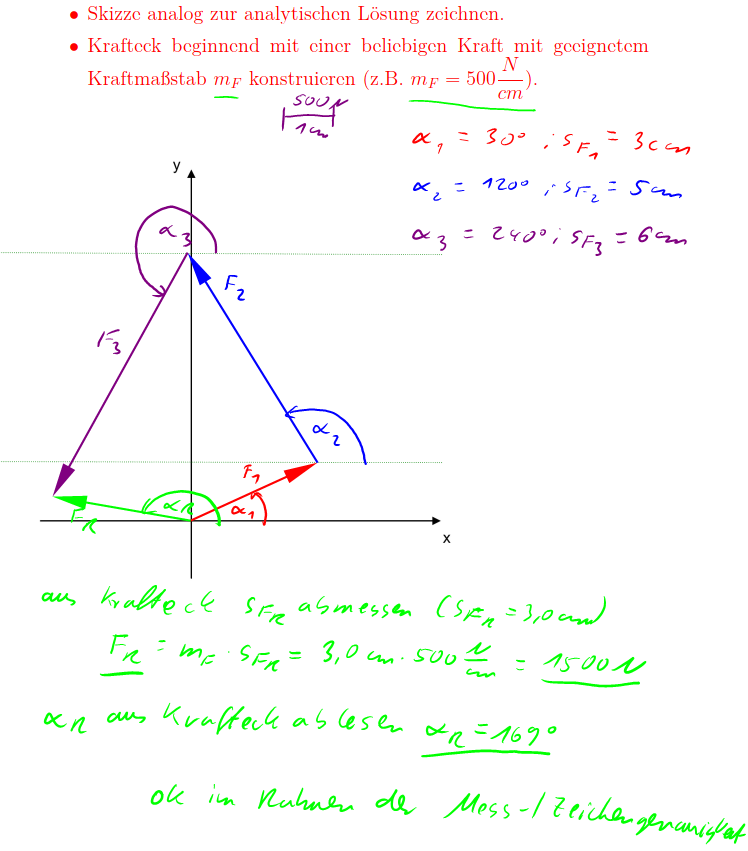 • Skizze analog zur analytischen Lösung zeichnen.
• Krafteck beginnend mit einer beliebigen Kraft mit geeignetem
Kraftmaßstab m_F konstruieren (z.B. m_F = 500 N/cm).
500N
1cm
α₁ = 30° ; s_F₁ = 3cm
α₂ = 120° ; s_F₂ = 5cm
α₃ = 240° ; s_F₃ = 6cm
y
α₃
F₂
F₃
α₂
F₁
α_R
α₁
F_R
x
aus Krafteck s_F_R abmessen (s_F_R = 3,0cm)
F_R = m_F · s_F_R = 3,0 cm · 500 N/cm = 1500N
α_R aus Krafteck ablesen α_R = 169°
ok im Rahmen der Mess-/Zeichengenauigkeit